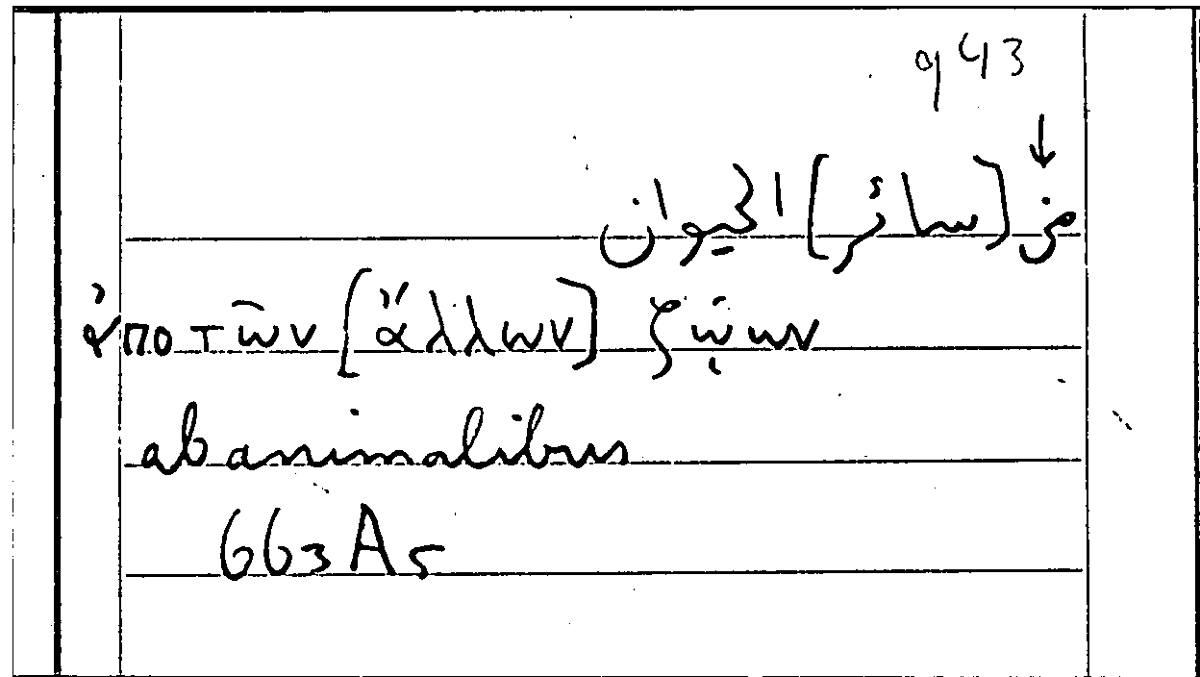 943
↓
من [سائر] الحيوان
ἀπο τῶν [ἄλλων] ζῴων
ab animalibus
663A5